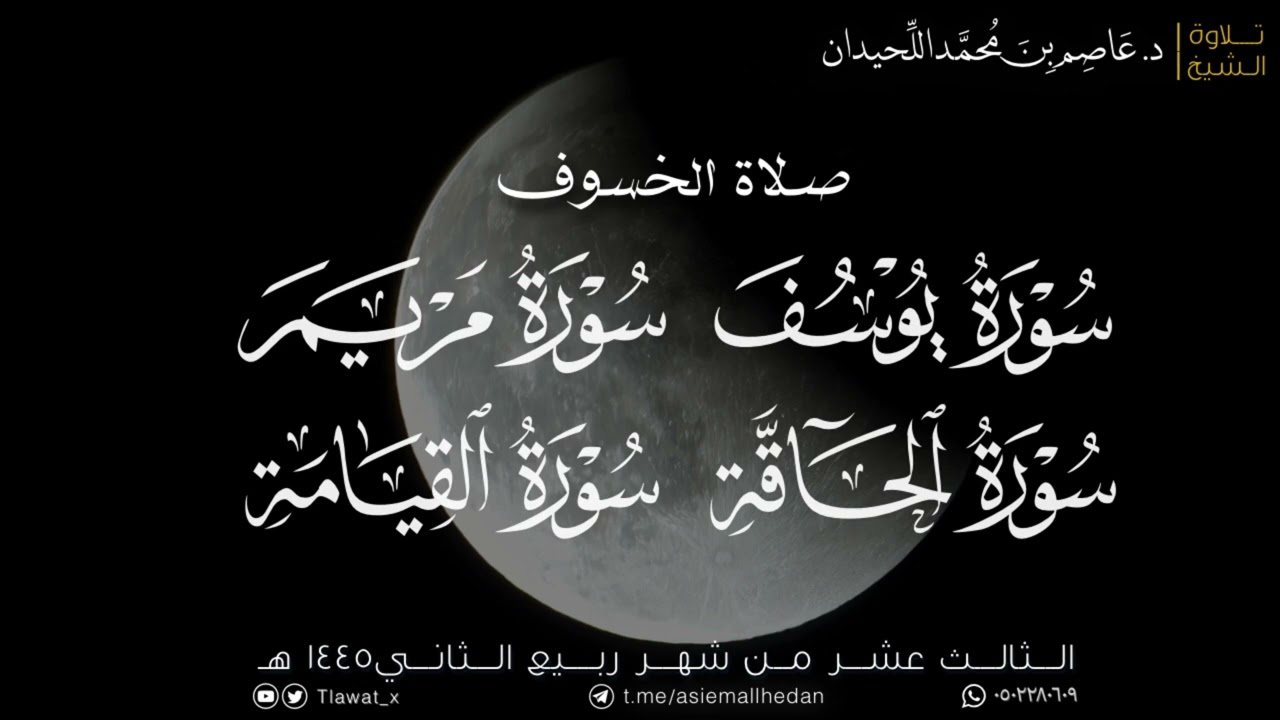 تلاوة الشيخ
د. عَاصِم بِنَ مُحمَّد اللِّحيدان
صلاة الخسوف
سُورَةُ يُوسُفَ سُورَةُ مَريَمَ
سُورَةُ ٱلحَآقَّةِ سُورَةُ ٱلقِيَامَةِ
الثالث عشر من شهر ربيع الثاني ١٤٤٥ هـ
Tlawat_x t.me/asiemallhedan ٠٥٠٢٢٨٠٦٠٩